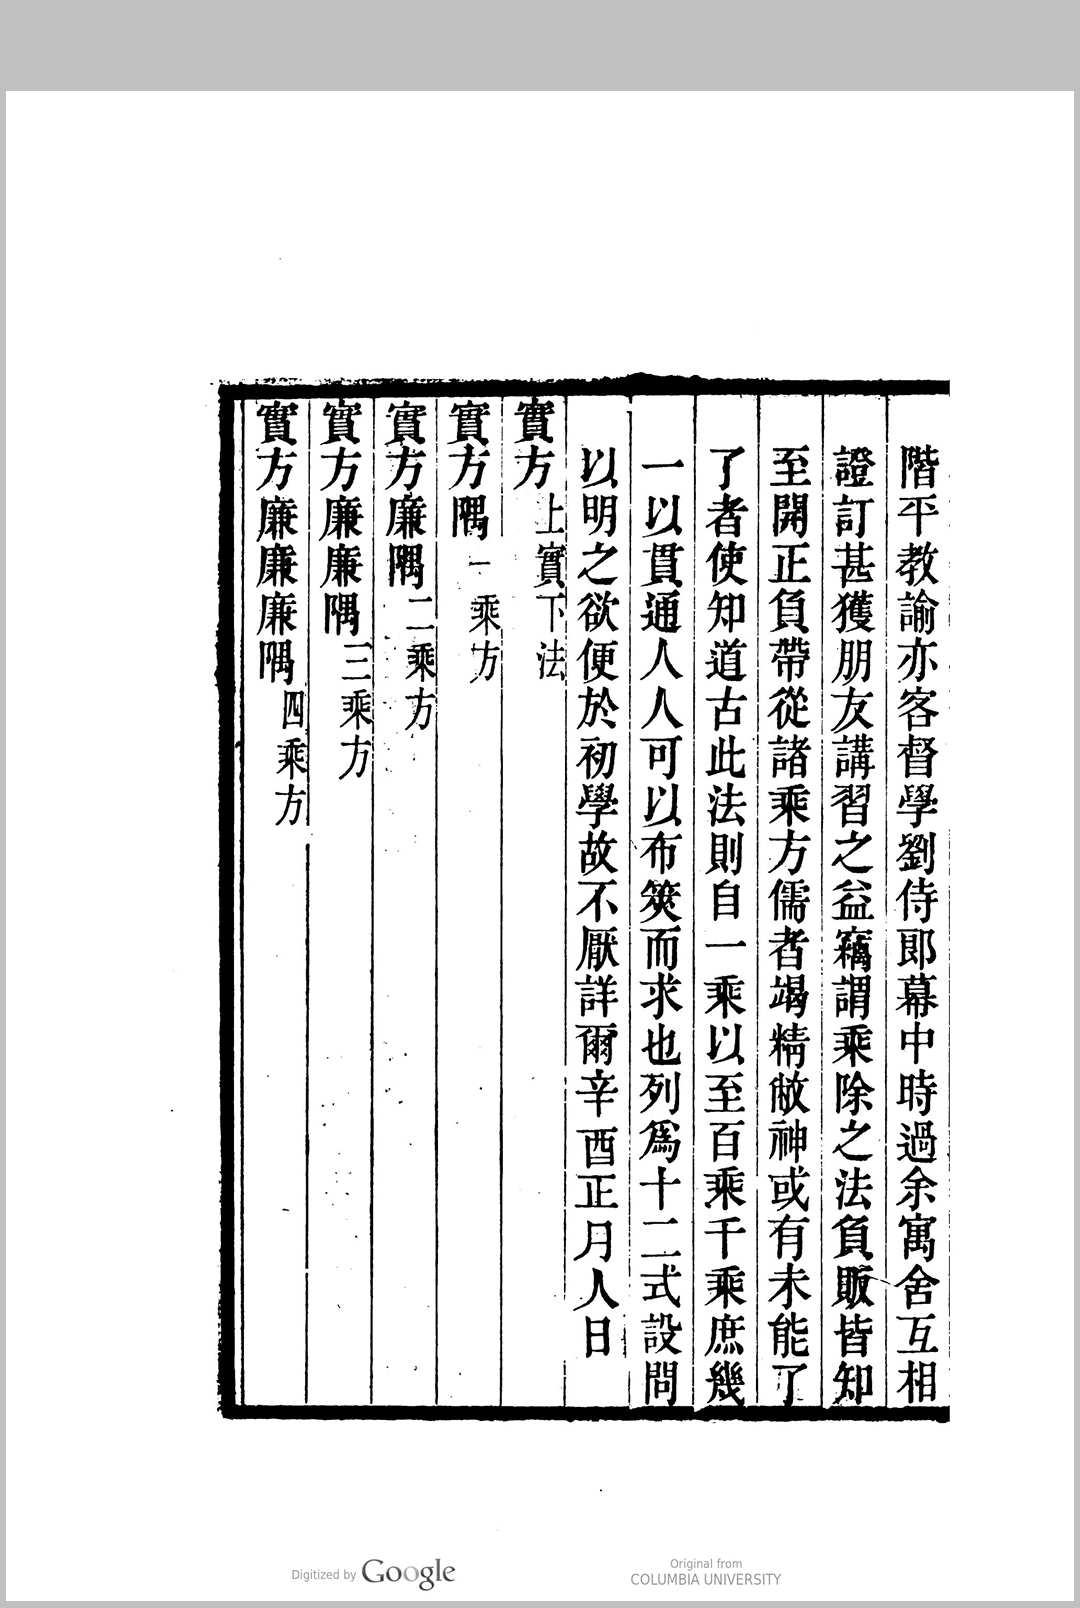 階平教諭亦客督學劉侍郎幕中時過余寓舍互相
證訂甚獲朋友講習之益竊謂乘除之法負販皆知
至開正負帶從諸乘方儒者竭精敝神或有未能了
了者使知道古此法則自一乘以至百乘千乘庶幾
一以貫通人人可以布筴而求也列爲十二式設問
以明之欲便於初學故不厭詳爾辛酉正月人日
實方上實下法
實方隅一乘方
實方廉隅二乘方
實方廉廉隅三乘方
實方廉廉廉隅四乘方
Digitized by Google
Original from
COLUMBIA UNIVERSITY